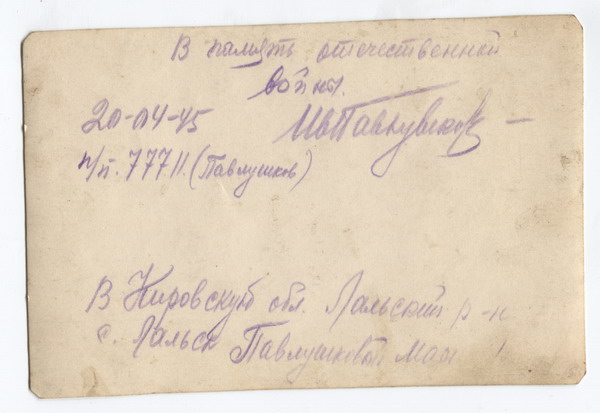 В память отечественной
войны.
20-04-45 ИвПавлушков
п/п. 77711. (Павлушков)
В Кировскую обл. Лальский р-н
с. Лальск Павлушковой